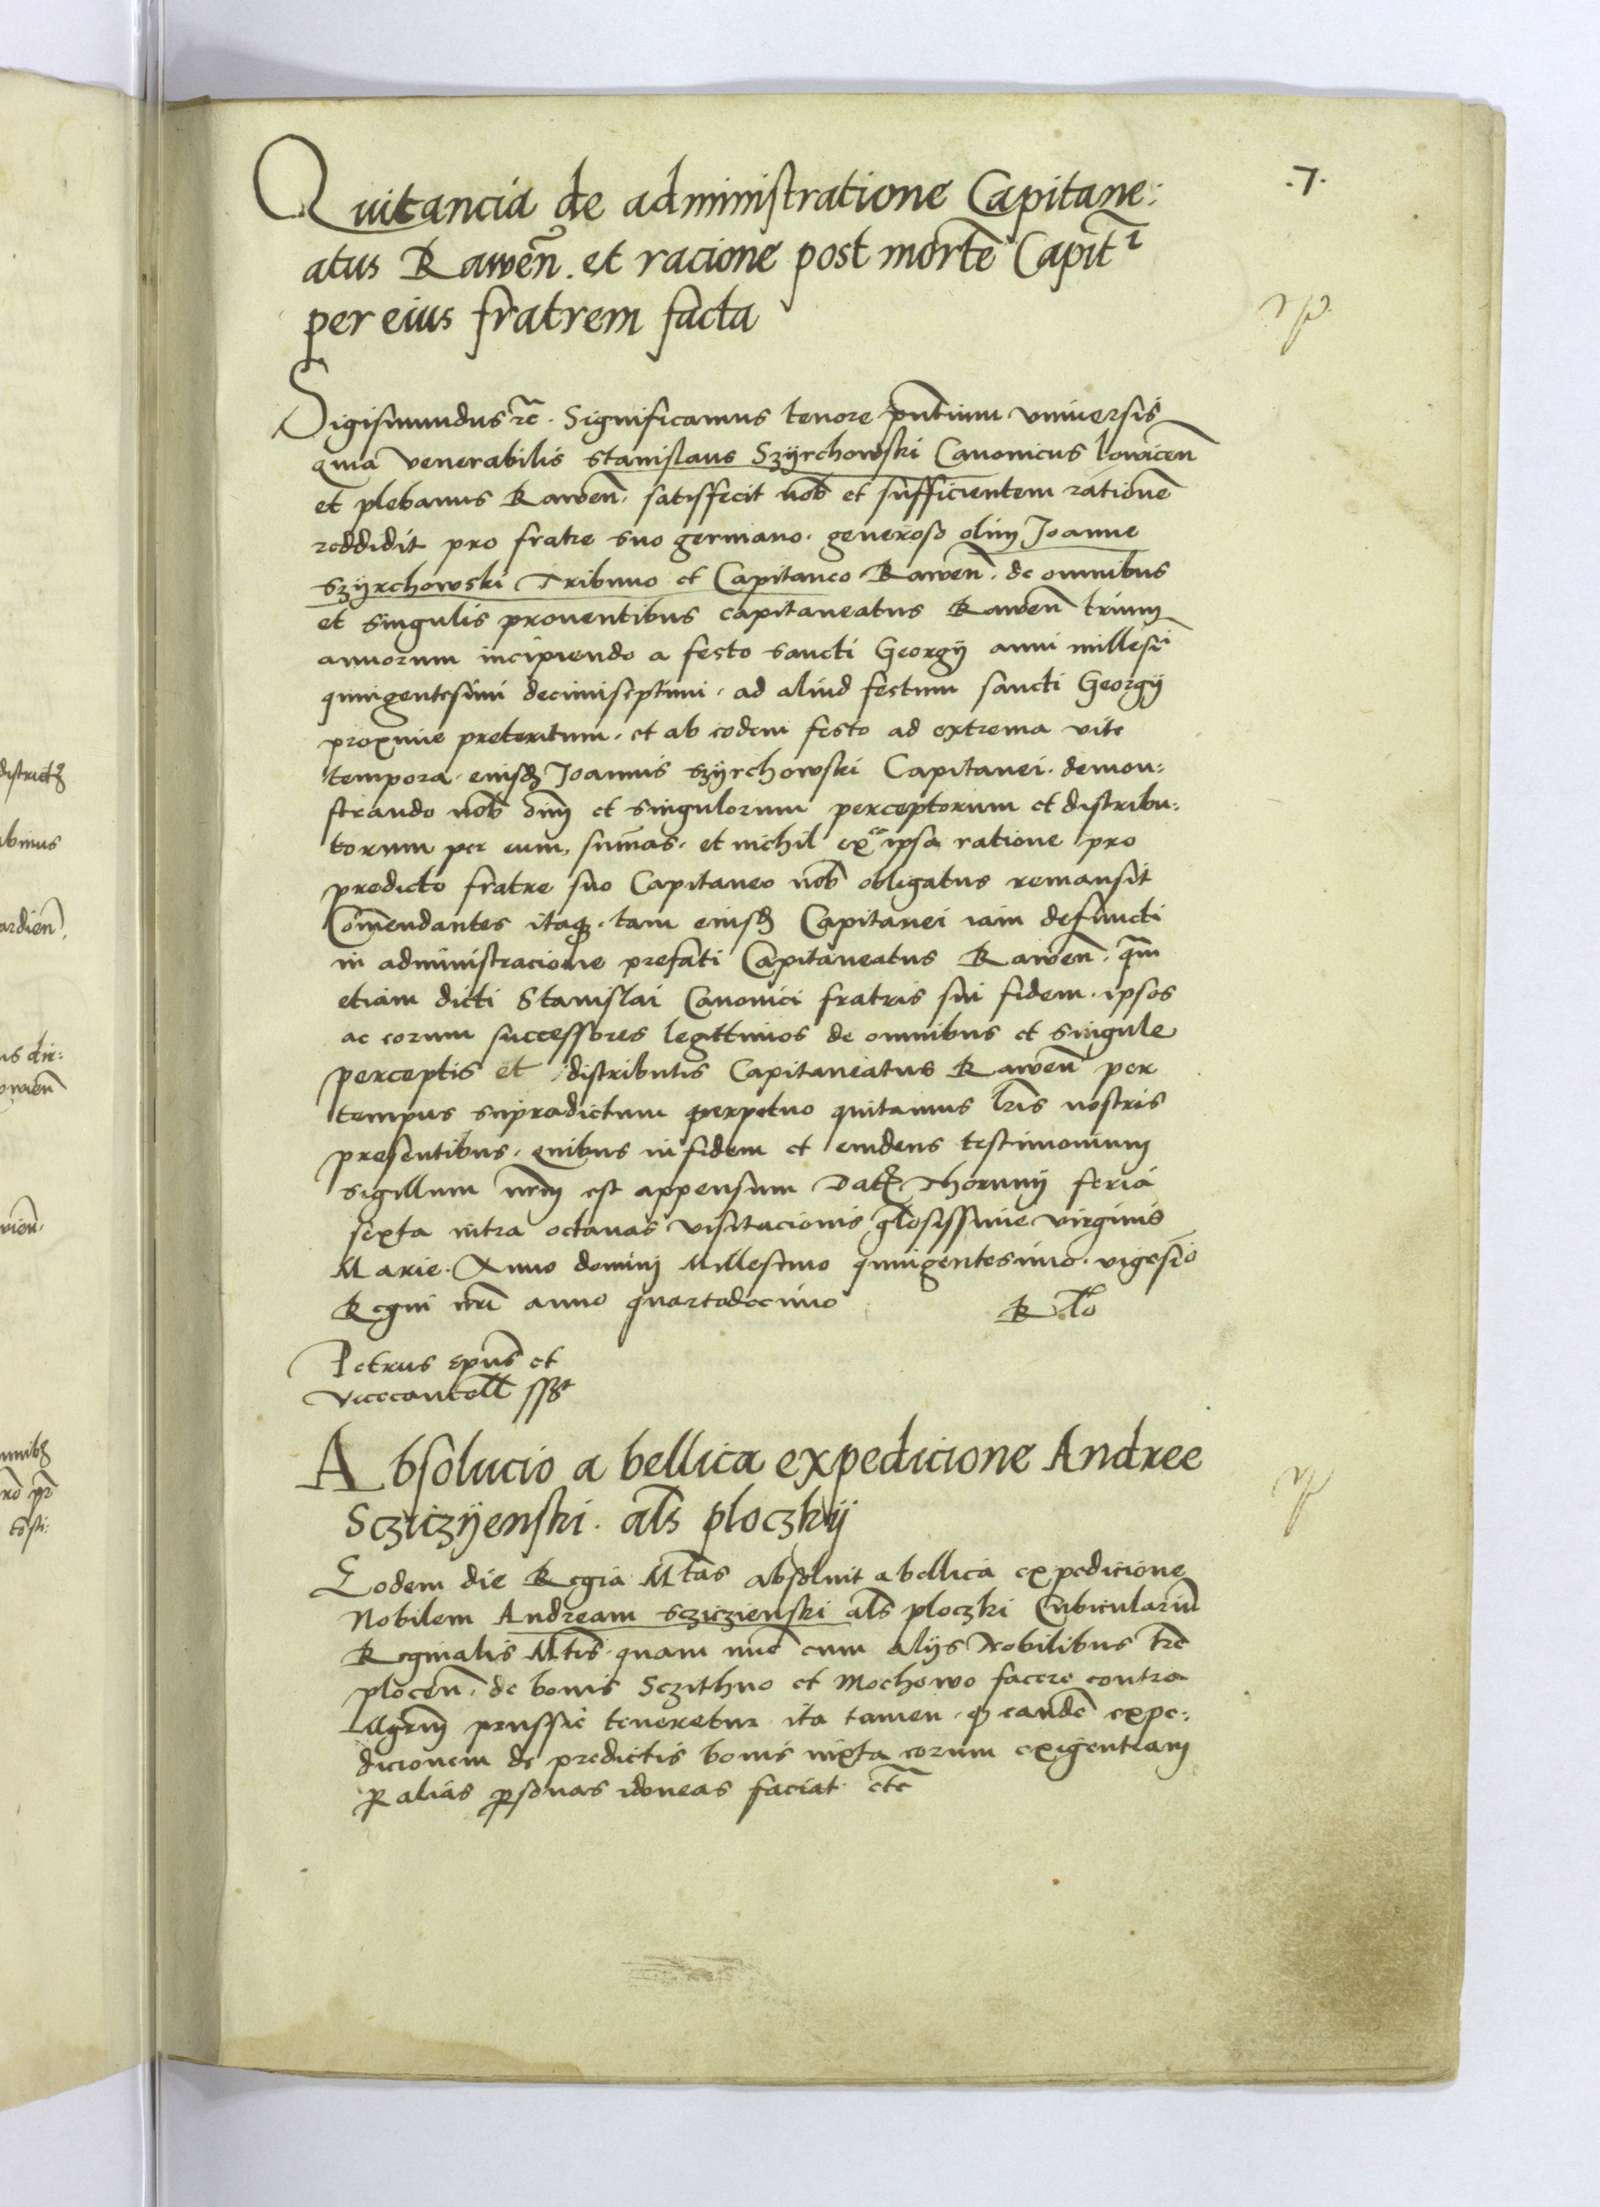 .7.
Quitancia de administratione Capitane:
atus Rawen̄. et racione post mortē Capitī
per eius fratrem facta
Sigismundus rc̄. Significamus tenore pn̄tium vniuersis
quia venerabilis stanislaus Szÿrchowski Canonicus lowicen̄
et plebanus Rawen̄. satisfecit nob̄ et sufficientem rationē
reddidit pro fratre suo germano. generoso olim Joanne
szÿrchowski Tribuno et Capitaneo Rawen̄. de omnibus
et singulis prouentibus capitaneatus Rawen̄ trium
annorum incipiendo a festo sancti Georgÿ anni millesī
quingentesimi decimiseptimi. ad aliud festum sancti Georgÿ
proxime preteritum. et ab eodem festo ad extrema vite
tempora. eiusdꝫ Joannis szÿrchowski Capitanei. demon:
strando nob̄ om̄ et singulorum perceptorum et distribu:
torum per eum, sum̄as. et nichil ex ipsa ratione pro
predicto fratre suo Capitaneo nob̄ obligatus remansit
Com̄endantes itaqꝫ. tam eiusdꝫ Capitanei iam defuncti
in administracione prefati Capitaneatus Rawen̄. qm̄
etiam dicti Stanislai Canonici fratris sui fidem. ipsos
ac eorum successores legittimos de omnibus et singule
perceptis et distributis Capitaneatus Rawen̄ per
tempus supradictum perpetuo quitamus lr̄is nostris
presentibus. quibus in fidem et euidens testimonium
sigillum nrm̄ est appensum Datꝫ. Thorunÿ feria
sexta intra octauas visitacionis gl̄osissime virginis
Marie. Anno domini Millesimo quingentesimo. vigesīo
Regni nr̄i anno quartodecimo
R lo
Petrus ep̄us et
vicecancell̄ sst
Absolucio a bellica expedicione Andree
Scziczÿenski. al̄s ploczkÿ
Eodem die Regia Mtas̄ absoluit a bellica expedicione
Nobilem Andream scziczienski al̄s ploczki Cubiculariū
Reginalis Mtis̄. quam nūc cum alÿs Nobilibus tr̄e
plocen̄. de bonis Sczithno et Mochowo facere contra
Mgrm̄ prussie teneretur ita tamen. ꝙ eandē expe:
dicionem de predictis bonis iuxta eorum exigentiam
ꝑ alias ꝑsonas idoneas faciat etc̄